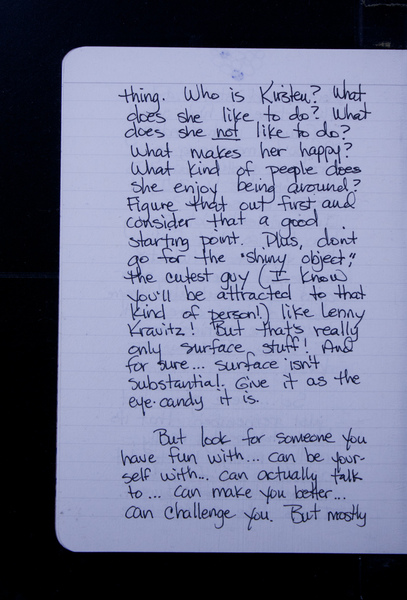 thing. Who is Kirsten? What
does she like to do? What
does she not like to do?
What makes her happy?
What kind of people does
she enjoy being around?
Figure that out first and
consider that a good
starting point. Plus, don't
go for the "shiny object,"
the cutest guy (I know
you'll be attracted to that
kind of person!) like Lenny
Kravitz! But that's really
only surface stuff! And
for sure... surface isn't
substantial. Give it as the
eye-candy it is.
But look for someone you
have fun with... can be your-
self with... can actually talk
to... can make you better...
can challenge you. But mostly